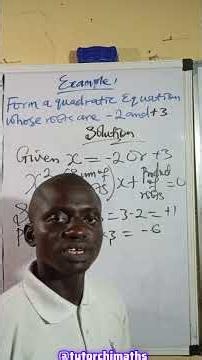 Example:
Form a quadratic Equation
whose roots are -2 and +3
Solution
Given x = -2 or +3
x² (Sum of x + Product of roots = 0
= 3-2 = +1
= -6
@tutorchimaths